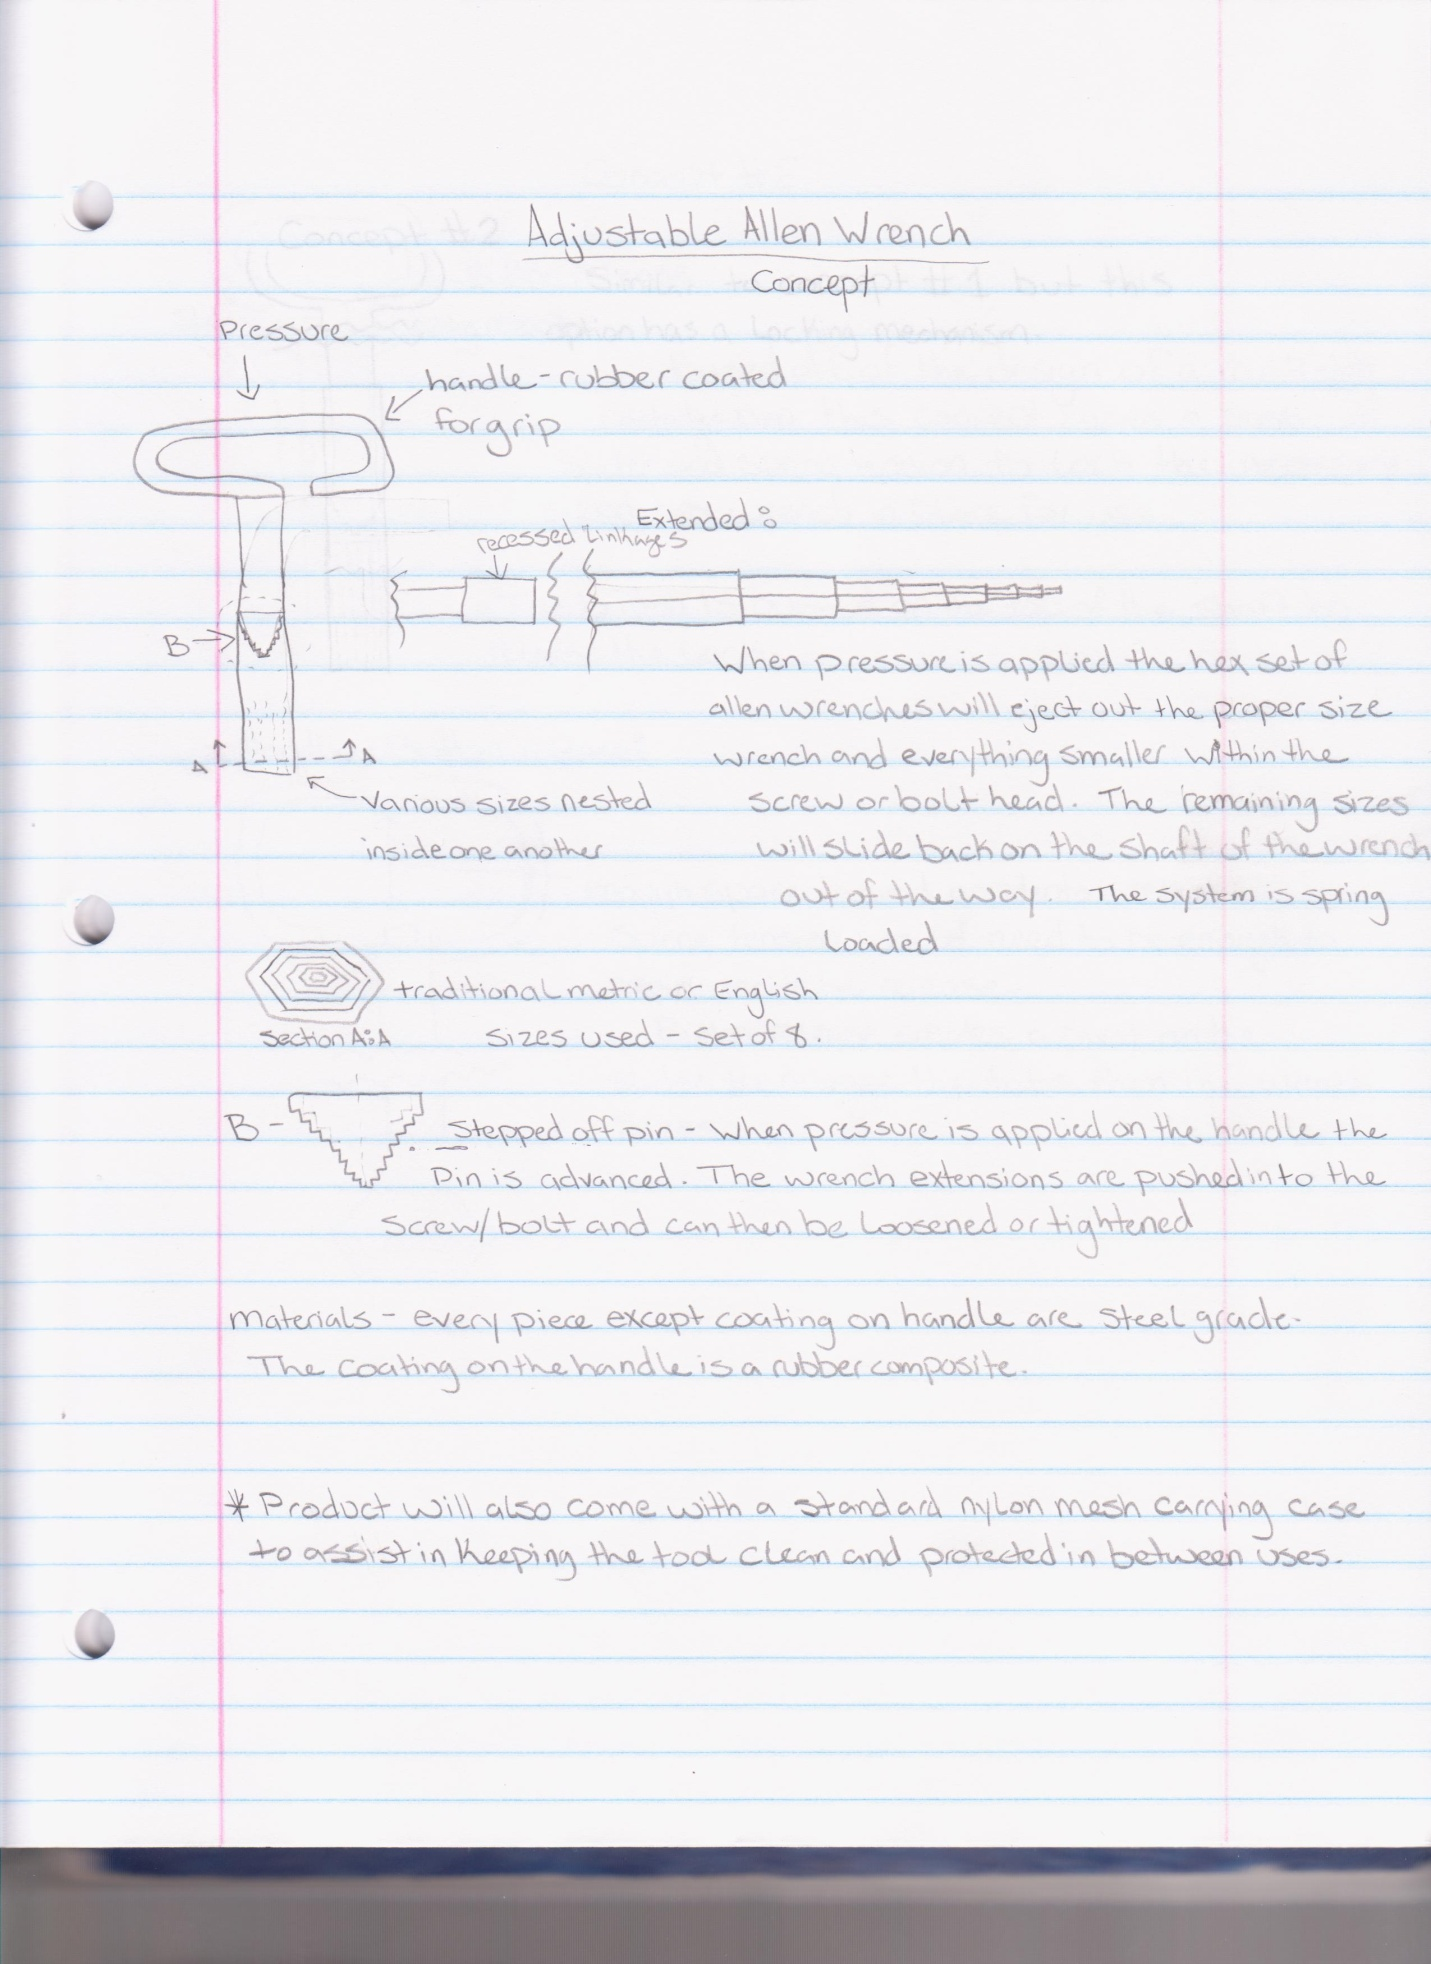 Adjustable Allen Wrench
Concept
Concept #2
Similar to concept #1 but this
option has a locking mechanism.
Pressure
handle-rubber coated
for grip
Extended:
recessed Linkages
B
When pressure is applied the hex set of
allen wrenches will eject out the proper size
wrench and everything smaller within the
screw or bolt head. The remaining sizes
will slide back on the shaft of the wrench
out of the way. The system is spring
Loaded
A A
Various sizes nested
inside one another
traditional metric or English
sizes used - set of 8.
Section A:A
B - Stepped off pin - When pressure is applied on the handle the
Pin is advanced. The wrench extensions are pushed into the
Screw/bolt and can then be loosened or tightened
materials - every piece except coating on handle are steel grade.
The coating on the handle is a rubber composite.
* Product will also come with a standard nylon mesh carrying case
to assist in keeping the tool clean and protected in between uses.